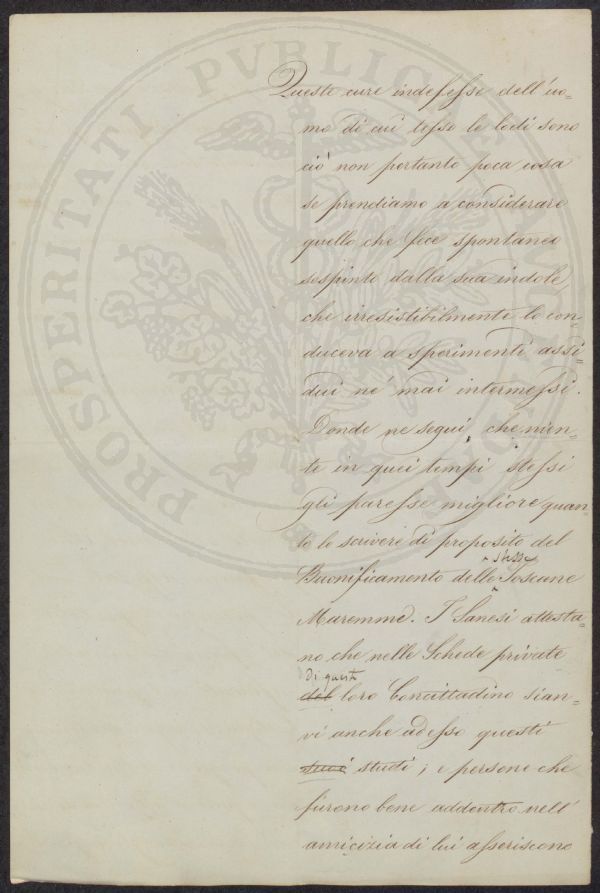 Queste cure indefesse dell'uo=
mo di cui tesso le lodi sono
ciò non pertanto poca cosa
se prendiamo a considerare
quello che fece spontaneo
sospinto dalla sua indole,
che irresistibilmente lo con=
duceva a sperimenti assi=
dui nè mai intermessi.
Donde ne seguì, che nien=
te in quei tempi stessi
gli paresse migliore quan=
to lo scrivere di proposito del
stesse
Buonificamento delle Toscane
Maremme. I Sanesi attesta=
no che nelle Schede private
di questo
del loro Concittadino sian=
vi anche adesso questi
suoi studi; e persone che
furono bene addentro nell'
amicizia di lui asseriscono
PROSPERITATI PVBLICAE